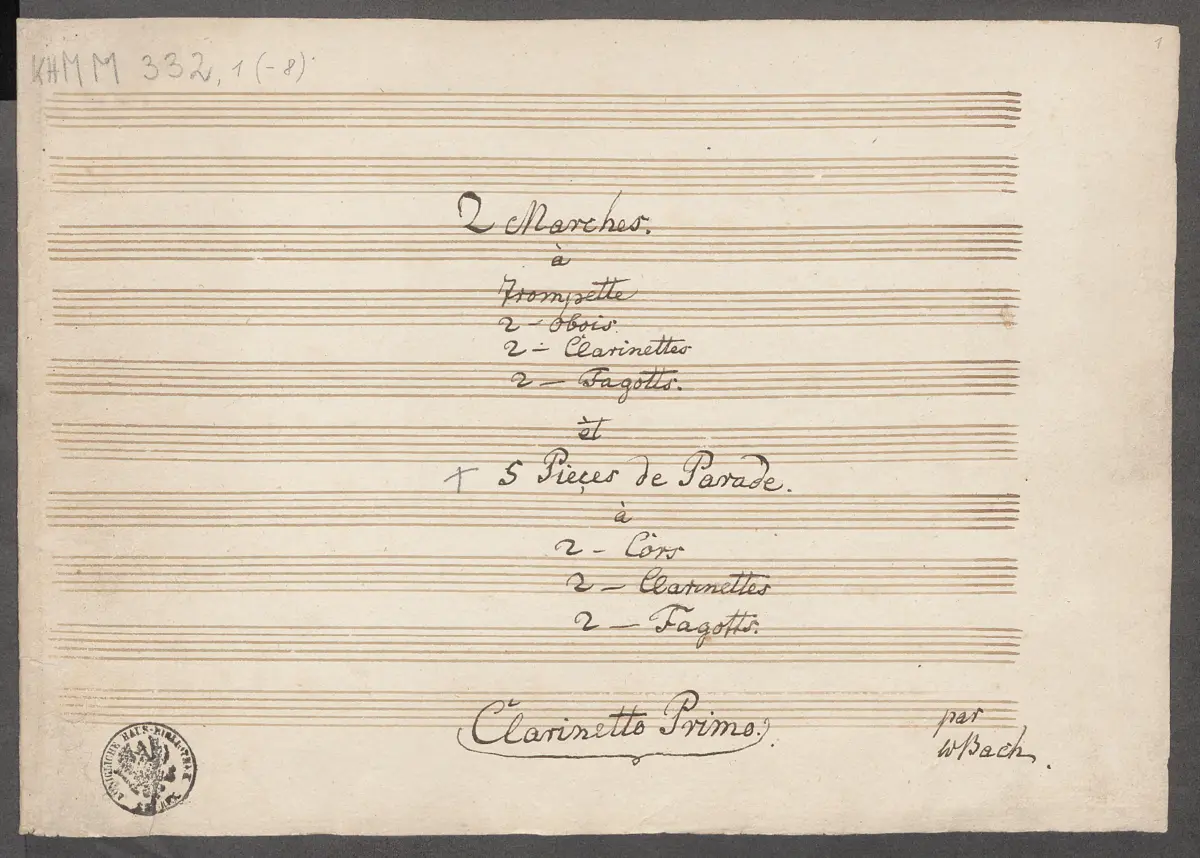 KHM M 332, 1 (-8)
1
2 Marches.
à
Trompette
2 - Obois.
2 - Clarinettes
2 - Fagotts.
èt
+ 5 Pieçes de Parade.
à
2 - Cors
2 - Clarinettes
2 - Fagotts.
Clarinetto Primo.
par
WBach.
KÖNIGLICHE HAUS-BIBLIOTHEK